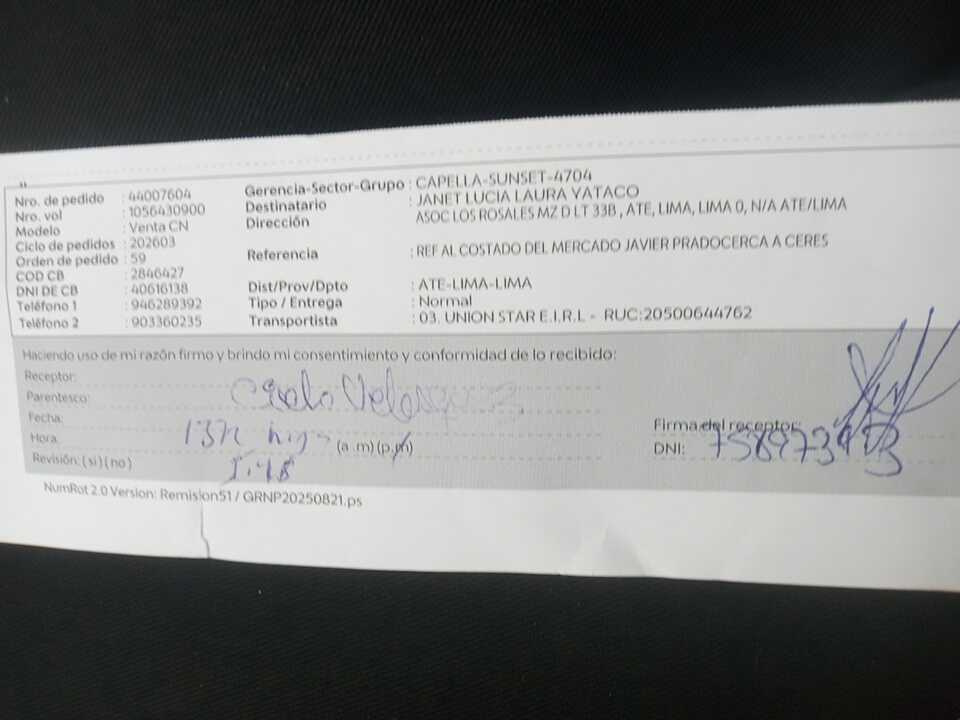 Nro. de pedido : 44007604
Nro. vol : 1056430900
Modelo : Venta CN
Ciclo de pedidos : 202603
Orden de pedido : 59
COD CB : 2846427
DNI DE CB : 40616138
Teléfono 1 : 946289392
Teléfono 2 : 903360235
Gerencia-Sector-Grupo : CAPELLA-SUNSET-4704
Destinatario : JANET LUCIA LAURA YATACO
Dirección : ASOC LOS ROSALES MZ D LT 33B , ATE, LIMA, LIMA 0, N/A ATE/LIMA
Referencia : REF AL COSTADO DEL MERCADO JAVIER PRADOCERCA A CERES
Dist/Prov/Dpto : ATE-LIMA-LIMA
Tipo / Entrega : Normal
Transportista : 03. UNION STAR E.I.R.L - RUC:20500644762
Haciendo uso de mi razón firmo y brindo mi consentimiento y conformidad de lo recibido:
Receptor:
Parentesco:
Fecha:
Hora: (a .m) (p.m)
Revisión: ( si ) ( no )
Firma del receptor:
DNI:
NumRot 2.0 Version: Remision51 / GRNP20250821.ps